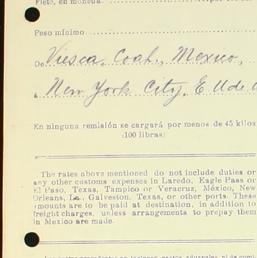 Flete, en moneda
Peso mínimo
De Viesca, Coah., Mexico,
a New York City, E U de
En ninguna remisión se cargará por menos de 45 kilos
(100 libras)
The rates above mentioned do not include duties or
any other customs expenses in Laredo, Eagle Pass or
El Paso, Texas, Tampico or Veracruz, México, New
Orleans, La. Galveston, Texas, or other ports. These
amounts are to be paid at destination, in addition to
freight charges, unless arrangements to prepay them
in Mexico are made.